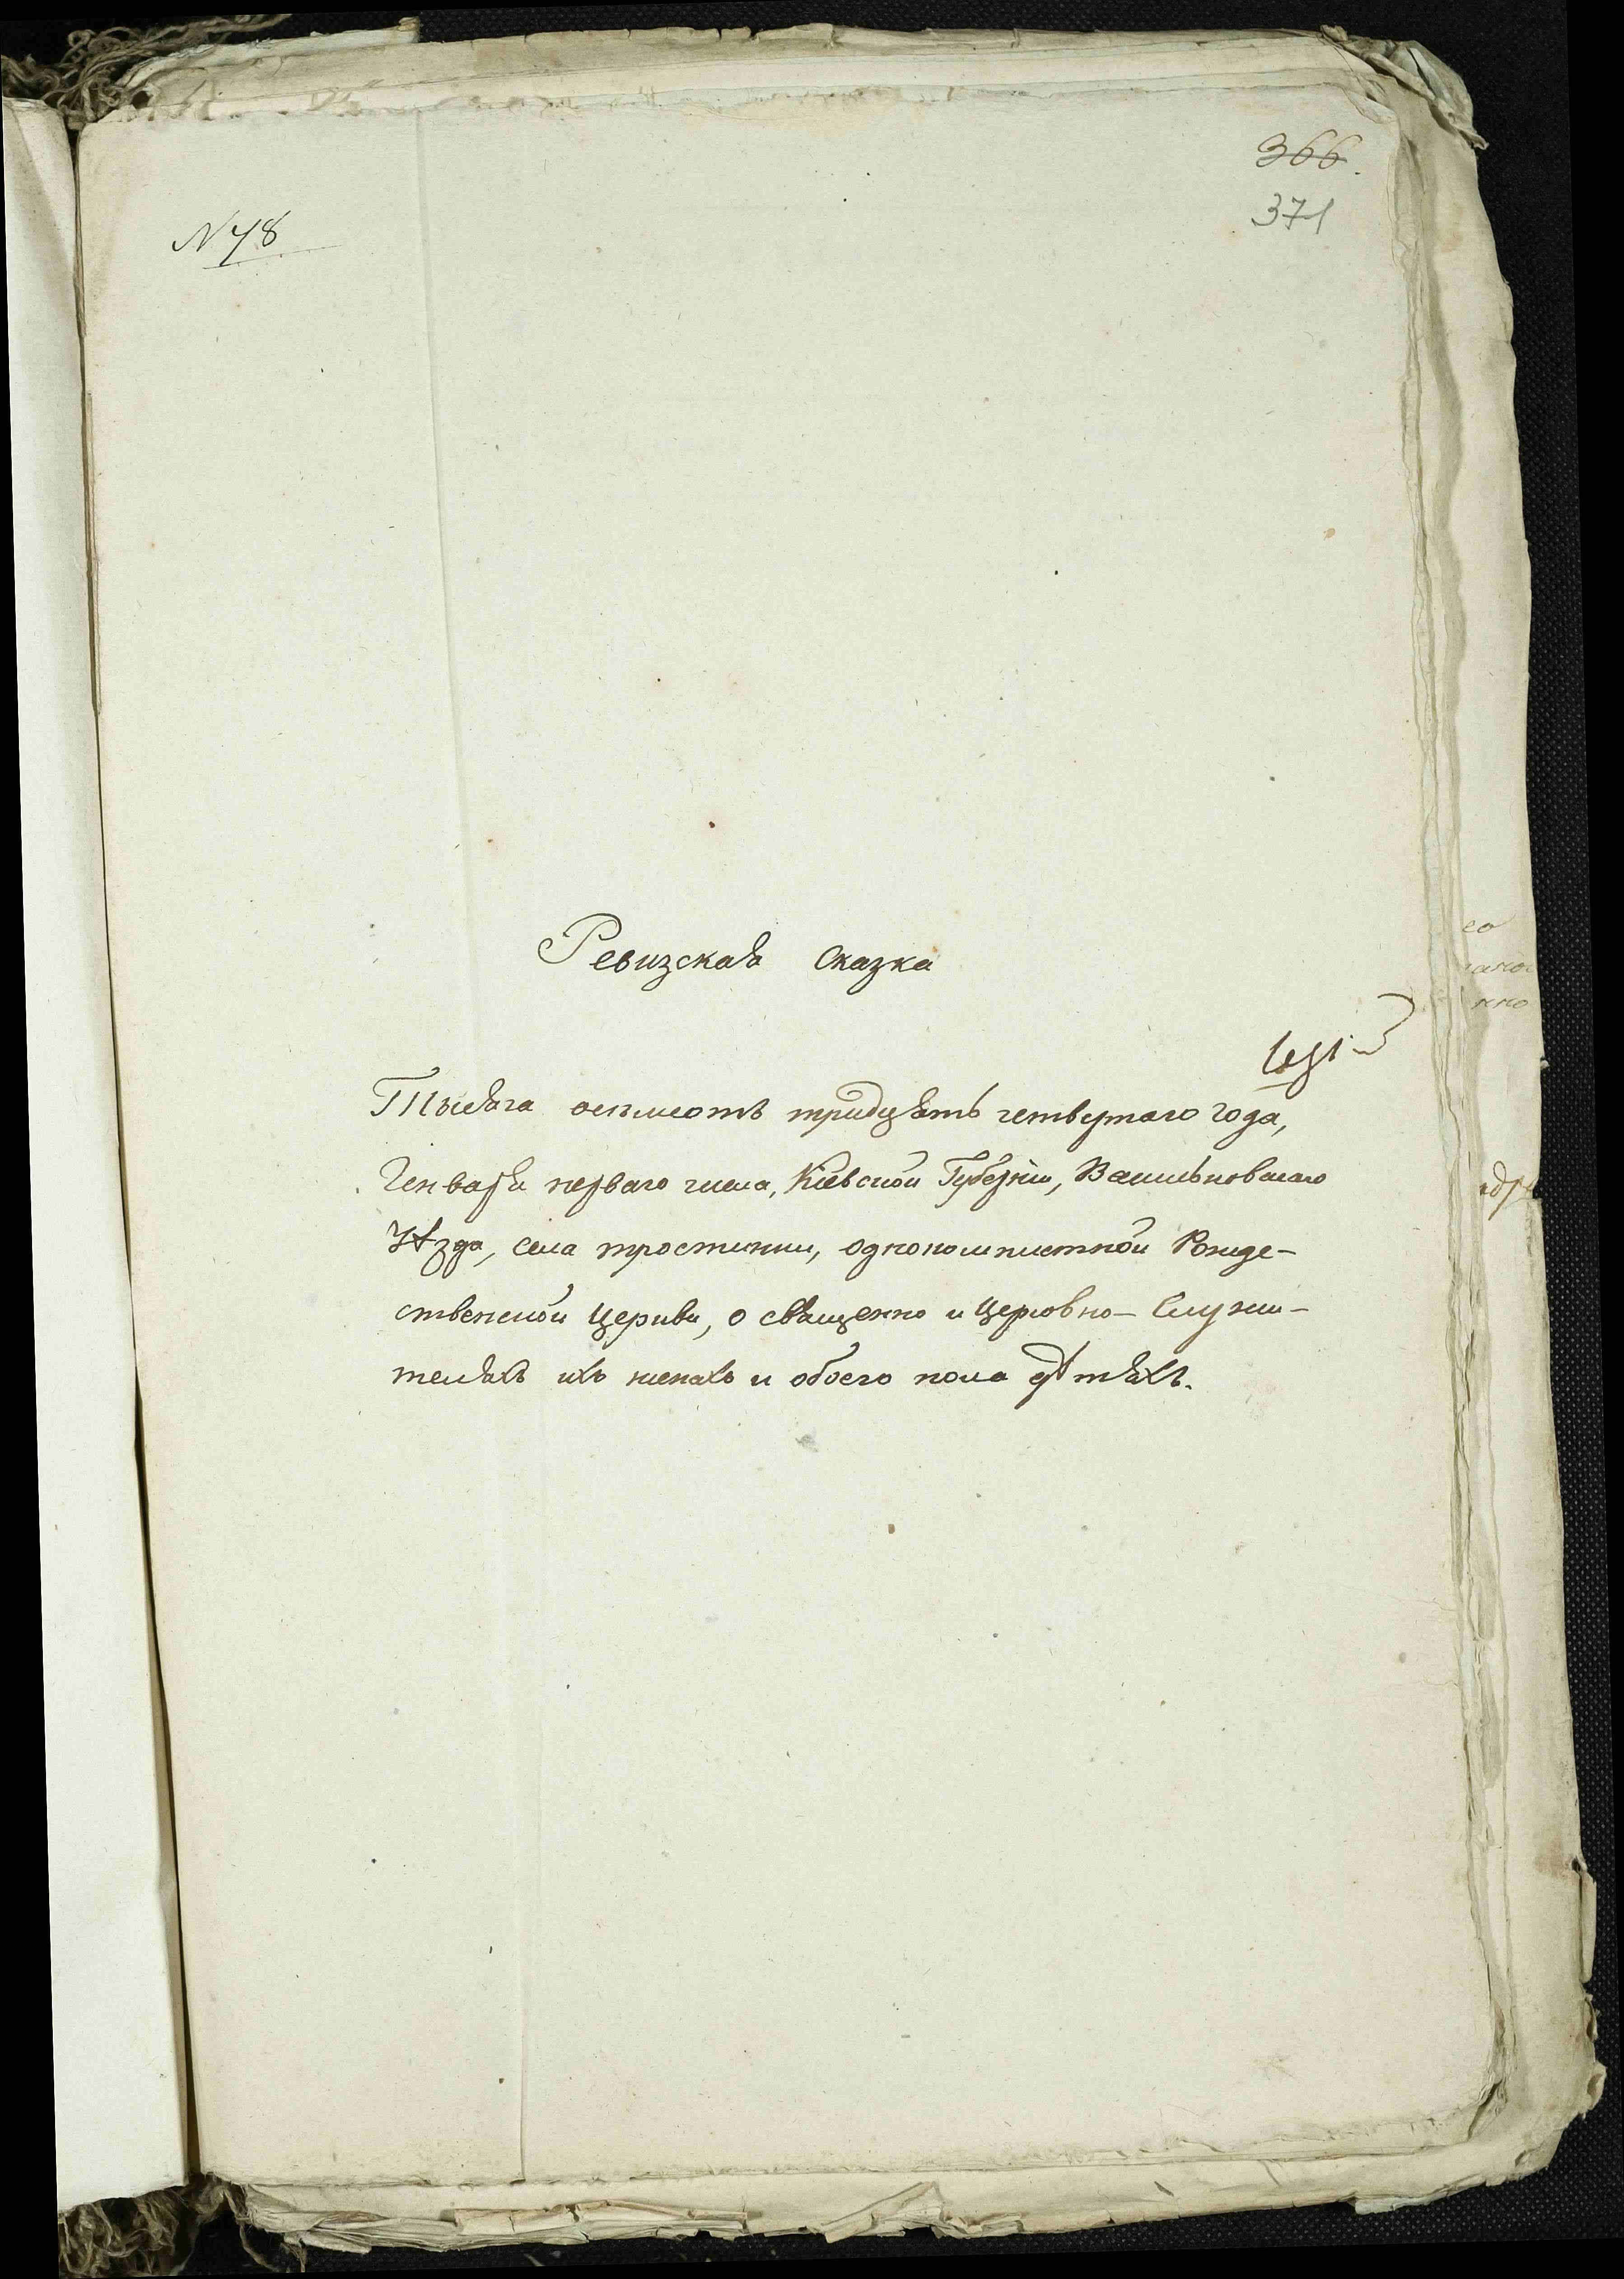 366.
371
N 48
Ревизская сказка
Тысяча осьмсотъ тридцять четвертаго года,
Генваря перваго числа, Кіевской Губерніи, Васильковскаго
Уѣзда, села Тростинки, однокомплетной Рожде-
ственской Церкви, о священно и Церковно-Служи-
теляхъ ихъ женахъ и обоего пола дѣтяхъ.